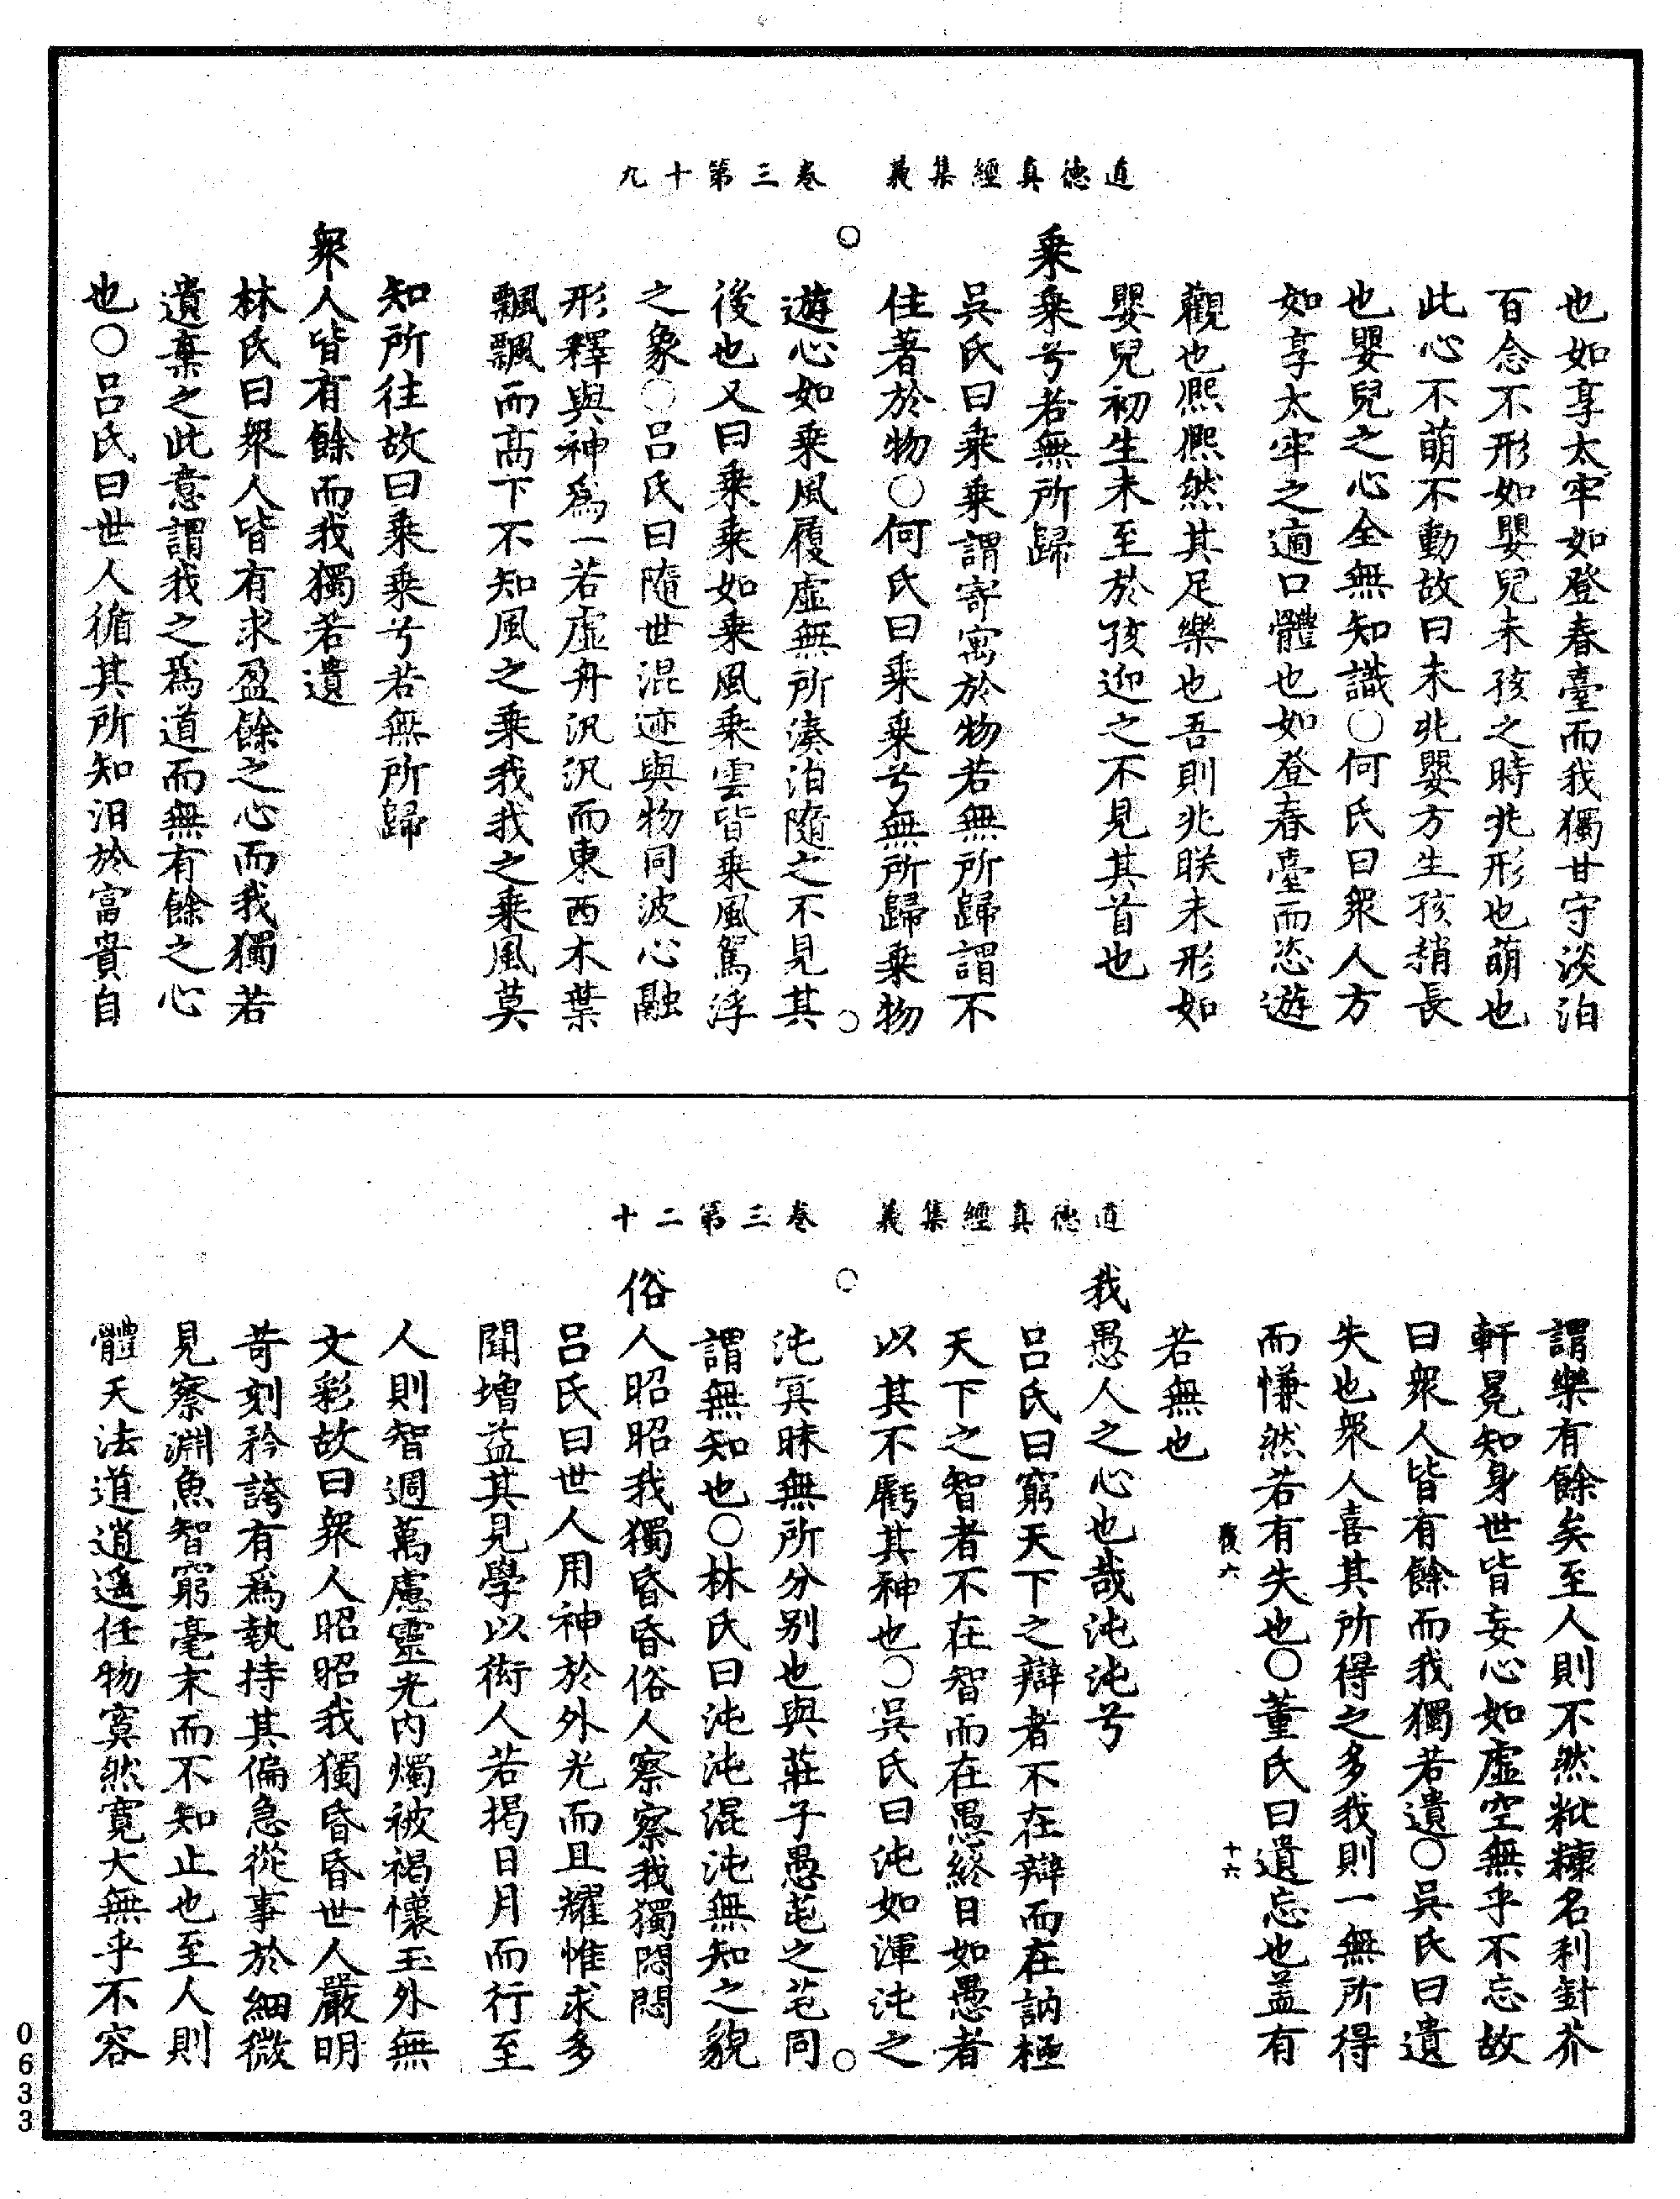 道德真經集義　卷三第十九
也如享太牢如登春臺而我獨甘守淡泊
百念不形如嬰兒未孩之時兆形也萌也
此心不萌不動故曰未兆嬰方生孩稍長
也嬰兒之心全無知識○何氏曰衆人方
如享太牢之適口體也如登春臺而恣遊
觀也熈熈然其足樂也吾則兆眹未形如
嬰兒初生未至於孩迎之不見其首也
乘乘兮若無所歸
吳氏曰乘乘謂寄寓於物若無所歸謂不
住著於物○何氏曰乘乘兮無所歸乘物
遊心如乘風履虛無所湊泊隨之不見其
後也又曰乘乘如乘風乘雲皆乘風駕浮
之象○呂氏曰隨世混迹與物同波心融
形釋與神爲一若虛舟汎汎而東西木葉
飄飄而高下不知風之乘我我之乘風莫
知所往故曰乘乘兮若無所歸
衆人皆有餘而我獨若遺
林氏曰衆人皆有求盈餘之心而我獨若
遺棄之此意謂我之爲道而無有餘之心
也○呂氏曰世人循其所知汨於富貴自
道德真經集義　卷三第二十
謂樂有餘矣至人則不然粃糠名利針芥
軒冕知身世皆妄心如虛空無乎不忘故
曰衆人皆有餘而我獨若遺○吳氏曰遺
失也衆人喜其所得之多我則一無所得
而慊然若有失也○董氏曰遺忘也蓋有
十六
若無也
我愚人之心也哉沌沌兮
呂氏曰窮天下之辯者不在辯而在訥極
天下之智者不在智而在愚終日如愚者
以其不虧其神也○吳氏曰沌如渾沌之
沌冥昧無所分别也與莊子愚芚之芚同
謂無知也○林氏曰沌沌混沌無知之貌
俗人昭昭我獨昏昏俗人察察我獨悶悶
呂氏曰世人用神於外光而且耀惟求多
聞增益其見學以衒人若揭日月而行至
人則智週萬慮靈光内燭被褐懷玉外無
文彩故曰衆人昭昭我獨昏昏世人嚴明
苛刻矜誇有爲執持其偏急從事於細微
見察淵魚智窮毫末而不知止也至人則
體天法道逍遥任物寞然寬大無乎不容
0633